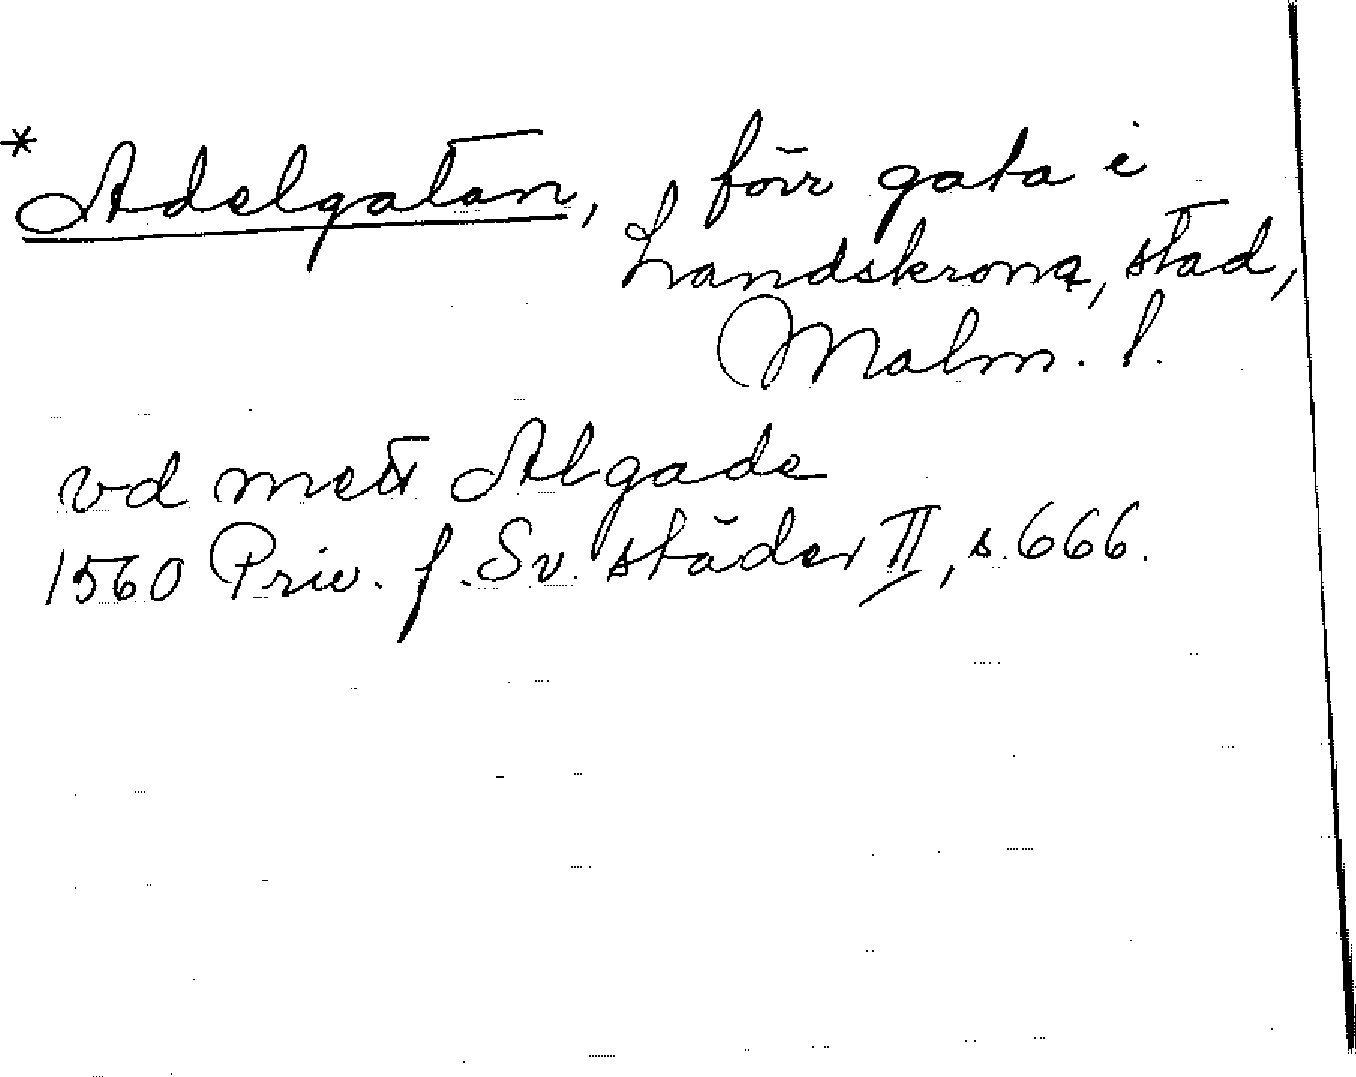 * Adelgatan, förr gata i
Landskrona, stad,
Malm. l.
vd mett Algade
1560 Priv. f. Sv. städer II, s. 666.